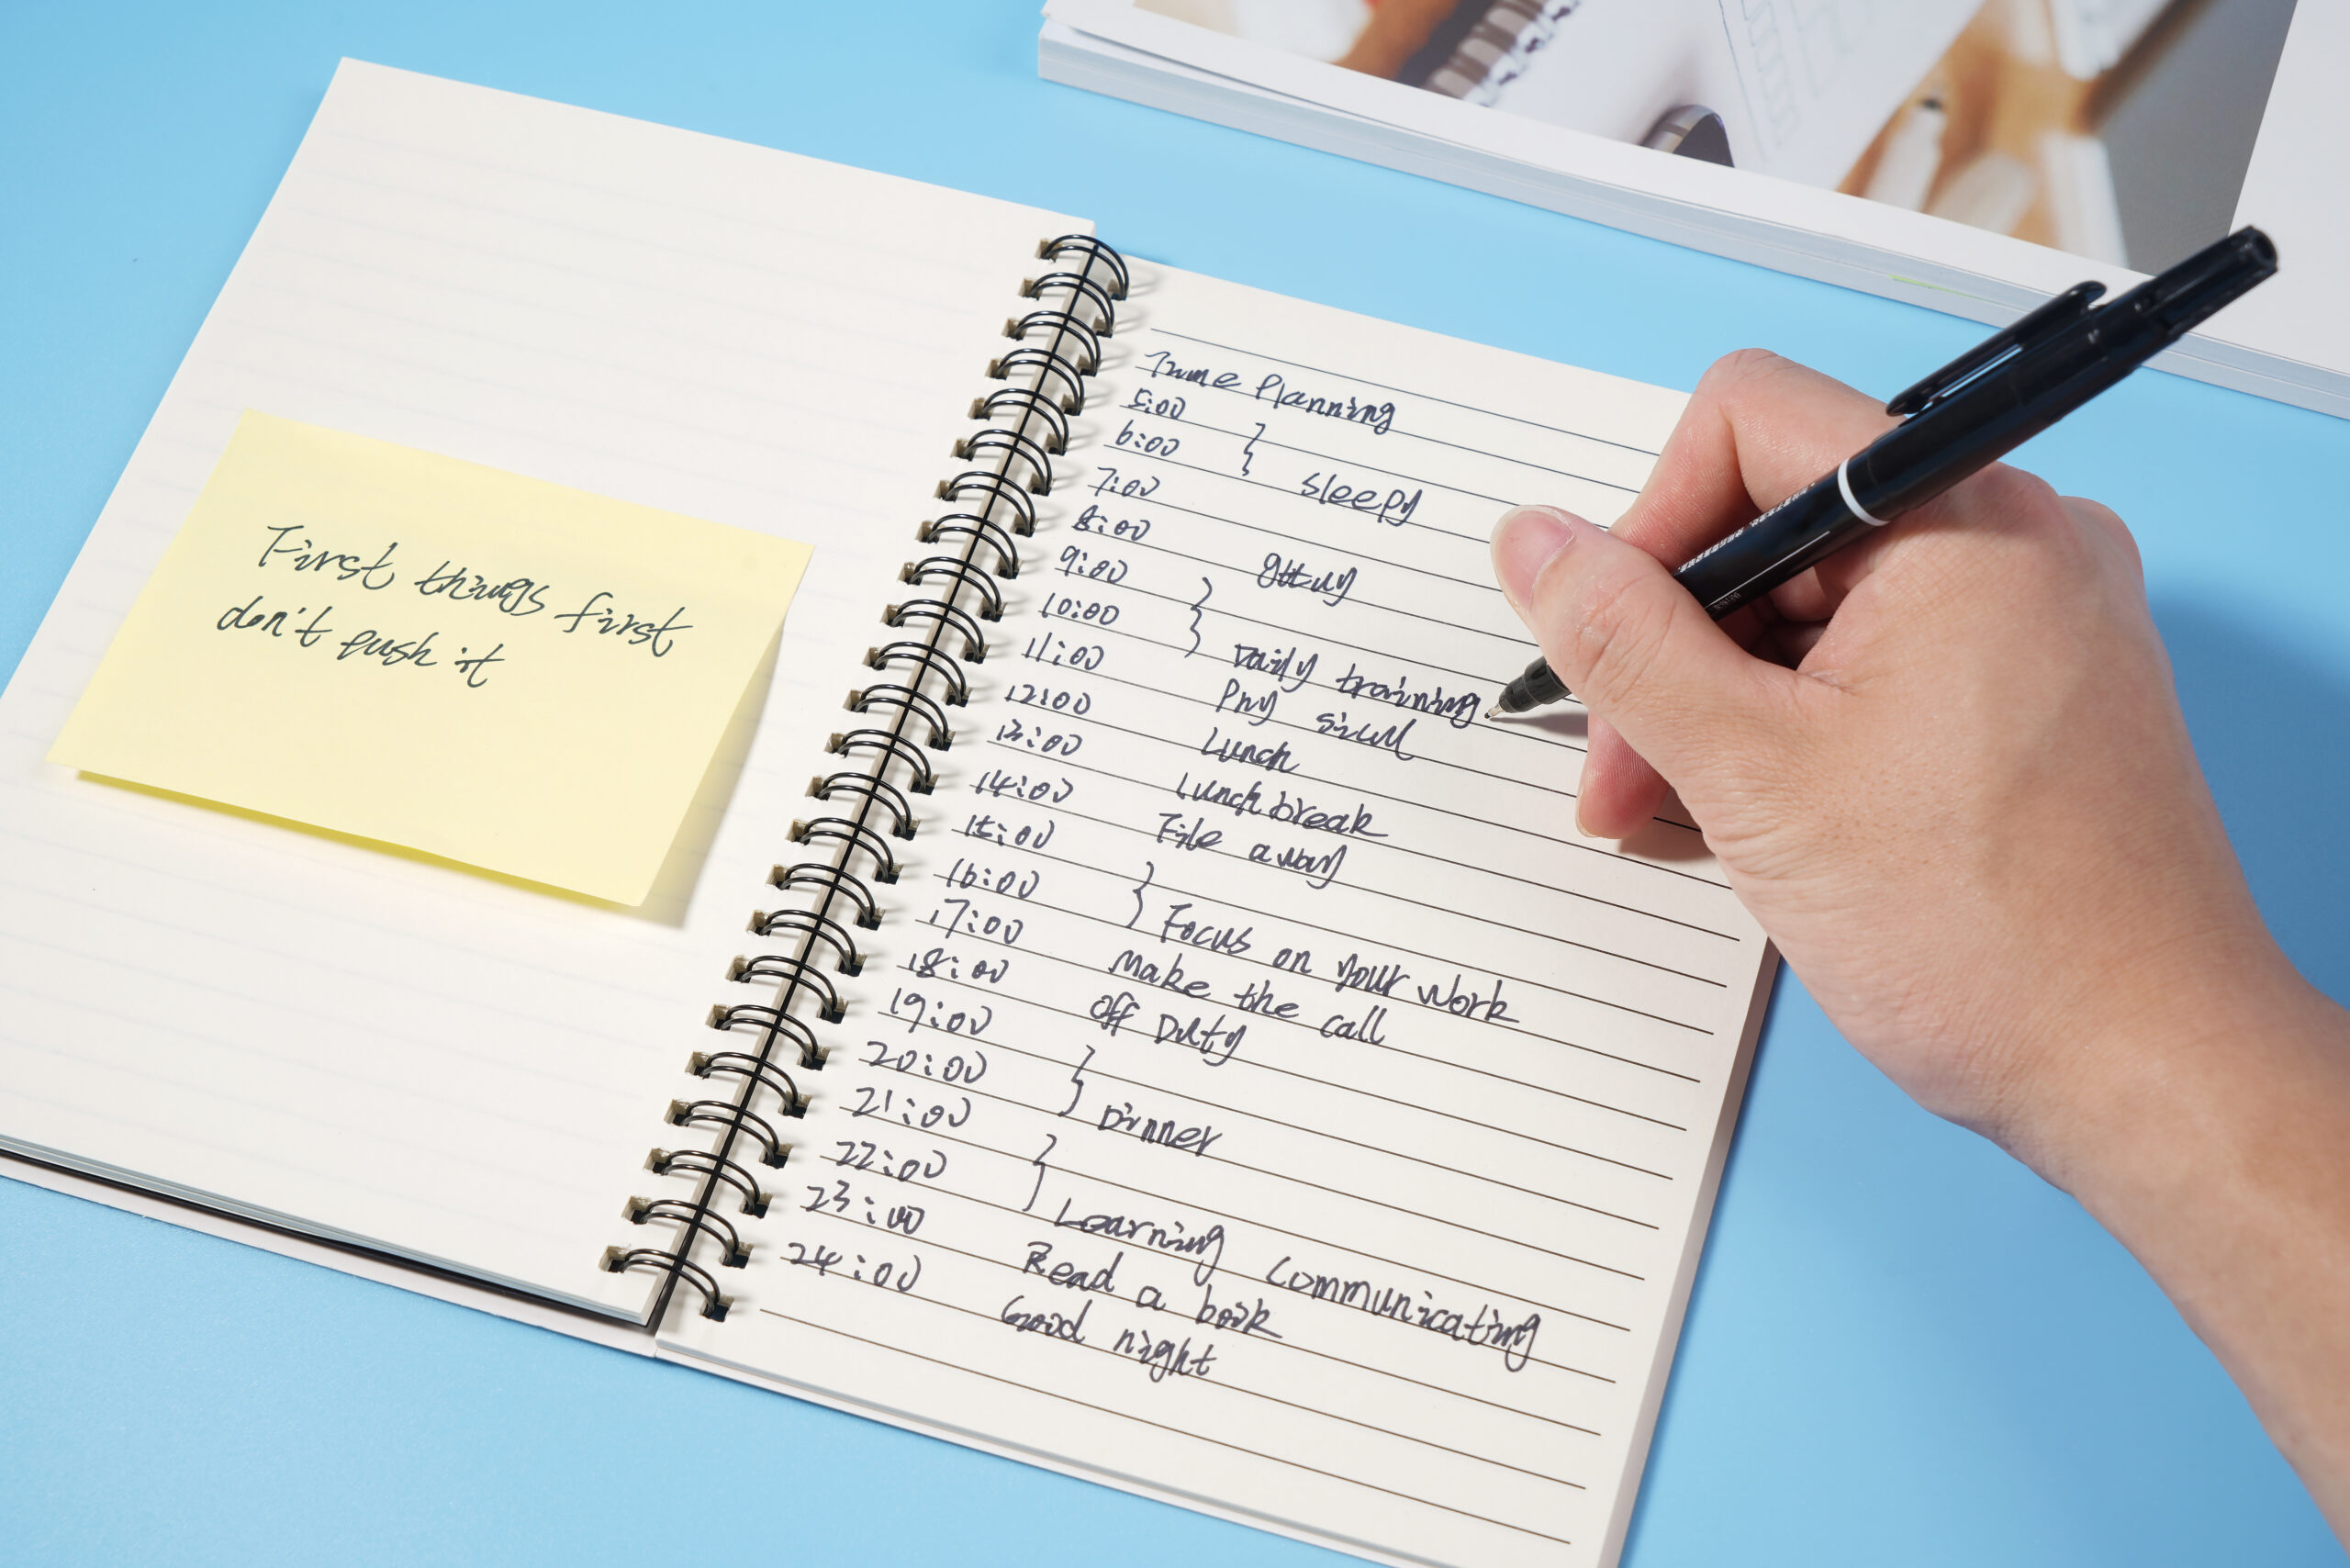 First things first
don't push it
Time Planning
5:00
6:00
sleepy
7:00
8:00
9:00
10:00
Daily training
11:00
12:00 Lunch
13:00 Lunch break
14:00 File away
15:00
16:00
Focus on your work
17:00 Make the call
18:00 Off Duty
19:00
20:00
Dinner
21:00
22:00
Learning Communicating
23:00 Read a book
24:00 Good night